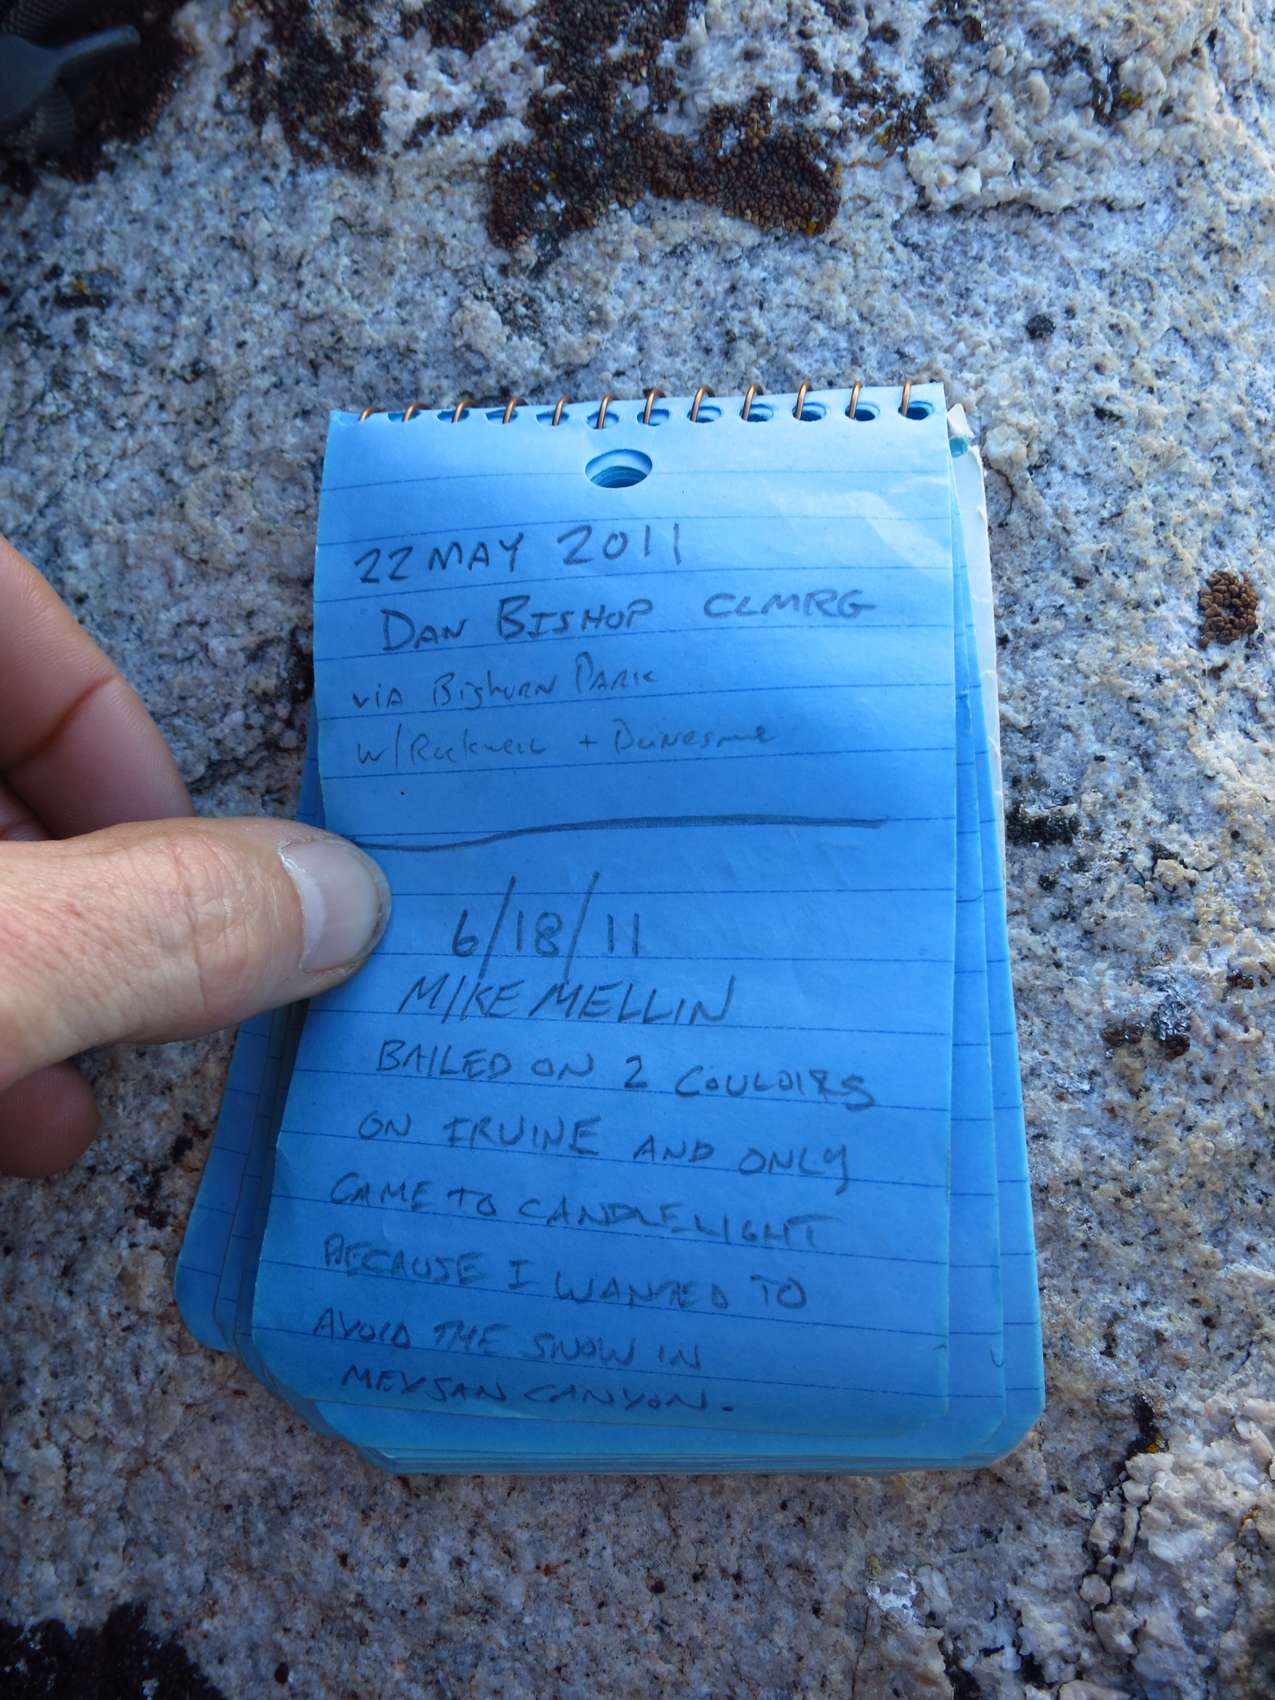 22 MAY 2011
DAN BISHOP CLMRG
VIA Bighorn PARK
W/Rockwell +
6/18/11
MIKE MELLIN
BAILED ON 2 COULOIRS
ON IRVINE AND ONLY
CAME TO CANDLELIGHT
BECAUSE I WANTED TO
AVOID THE SNOW IN
MEYSAN CANYON.